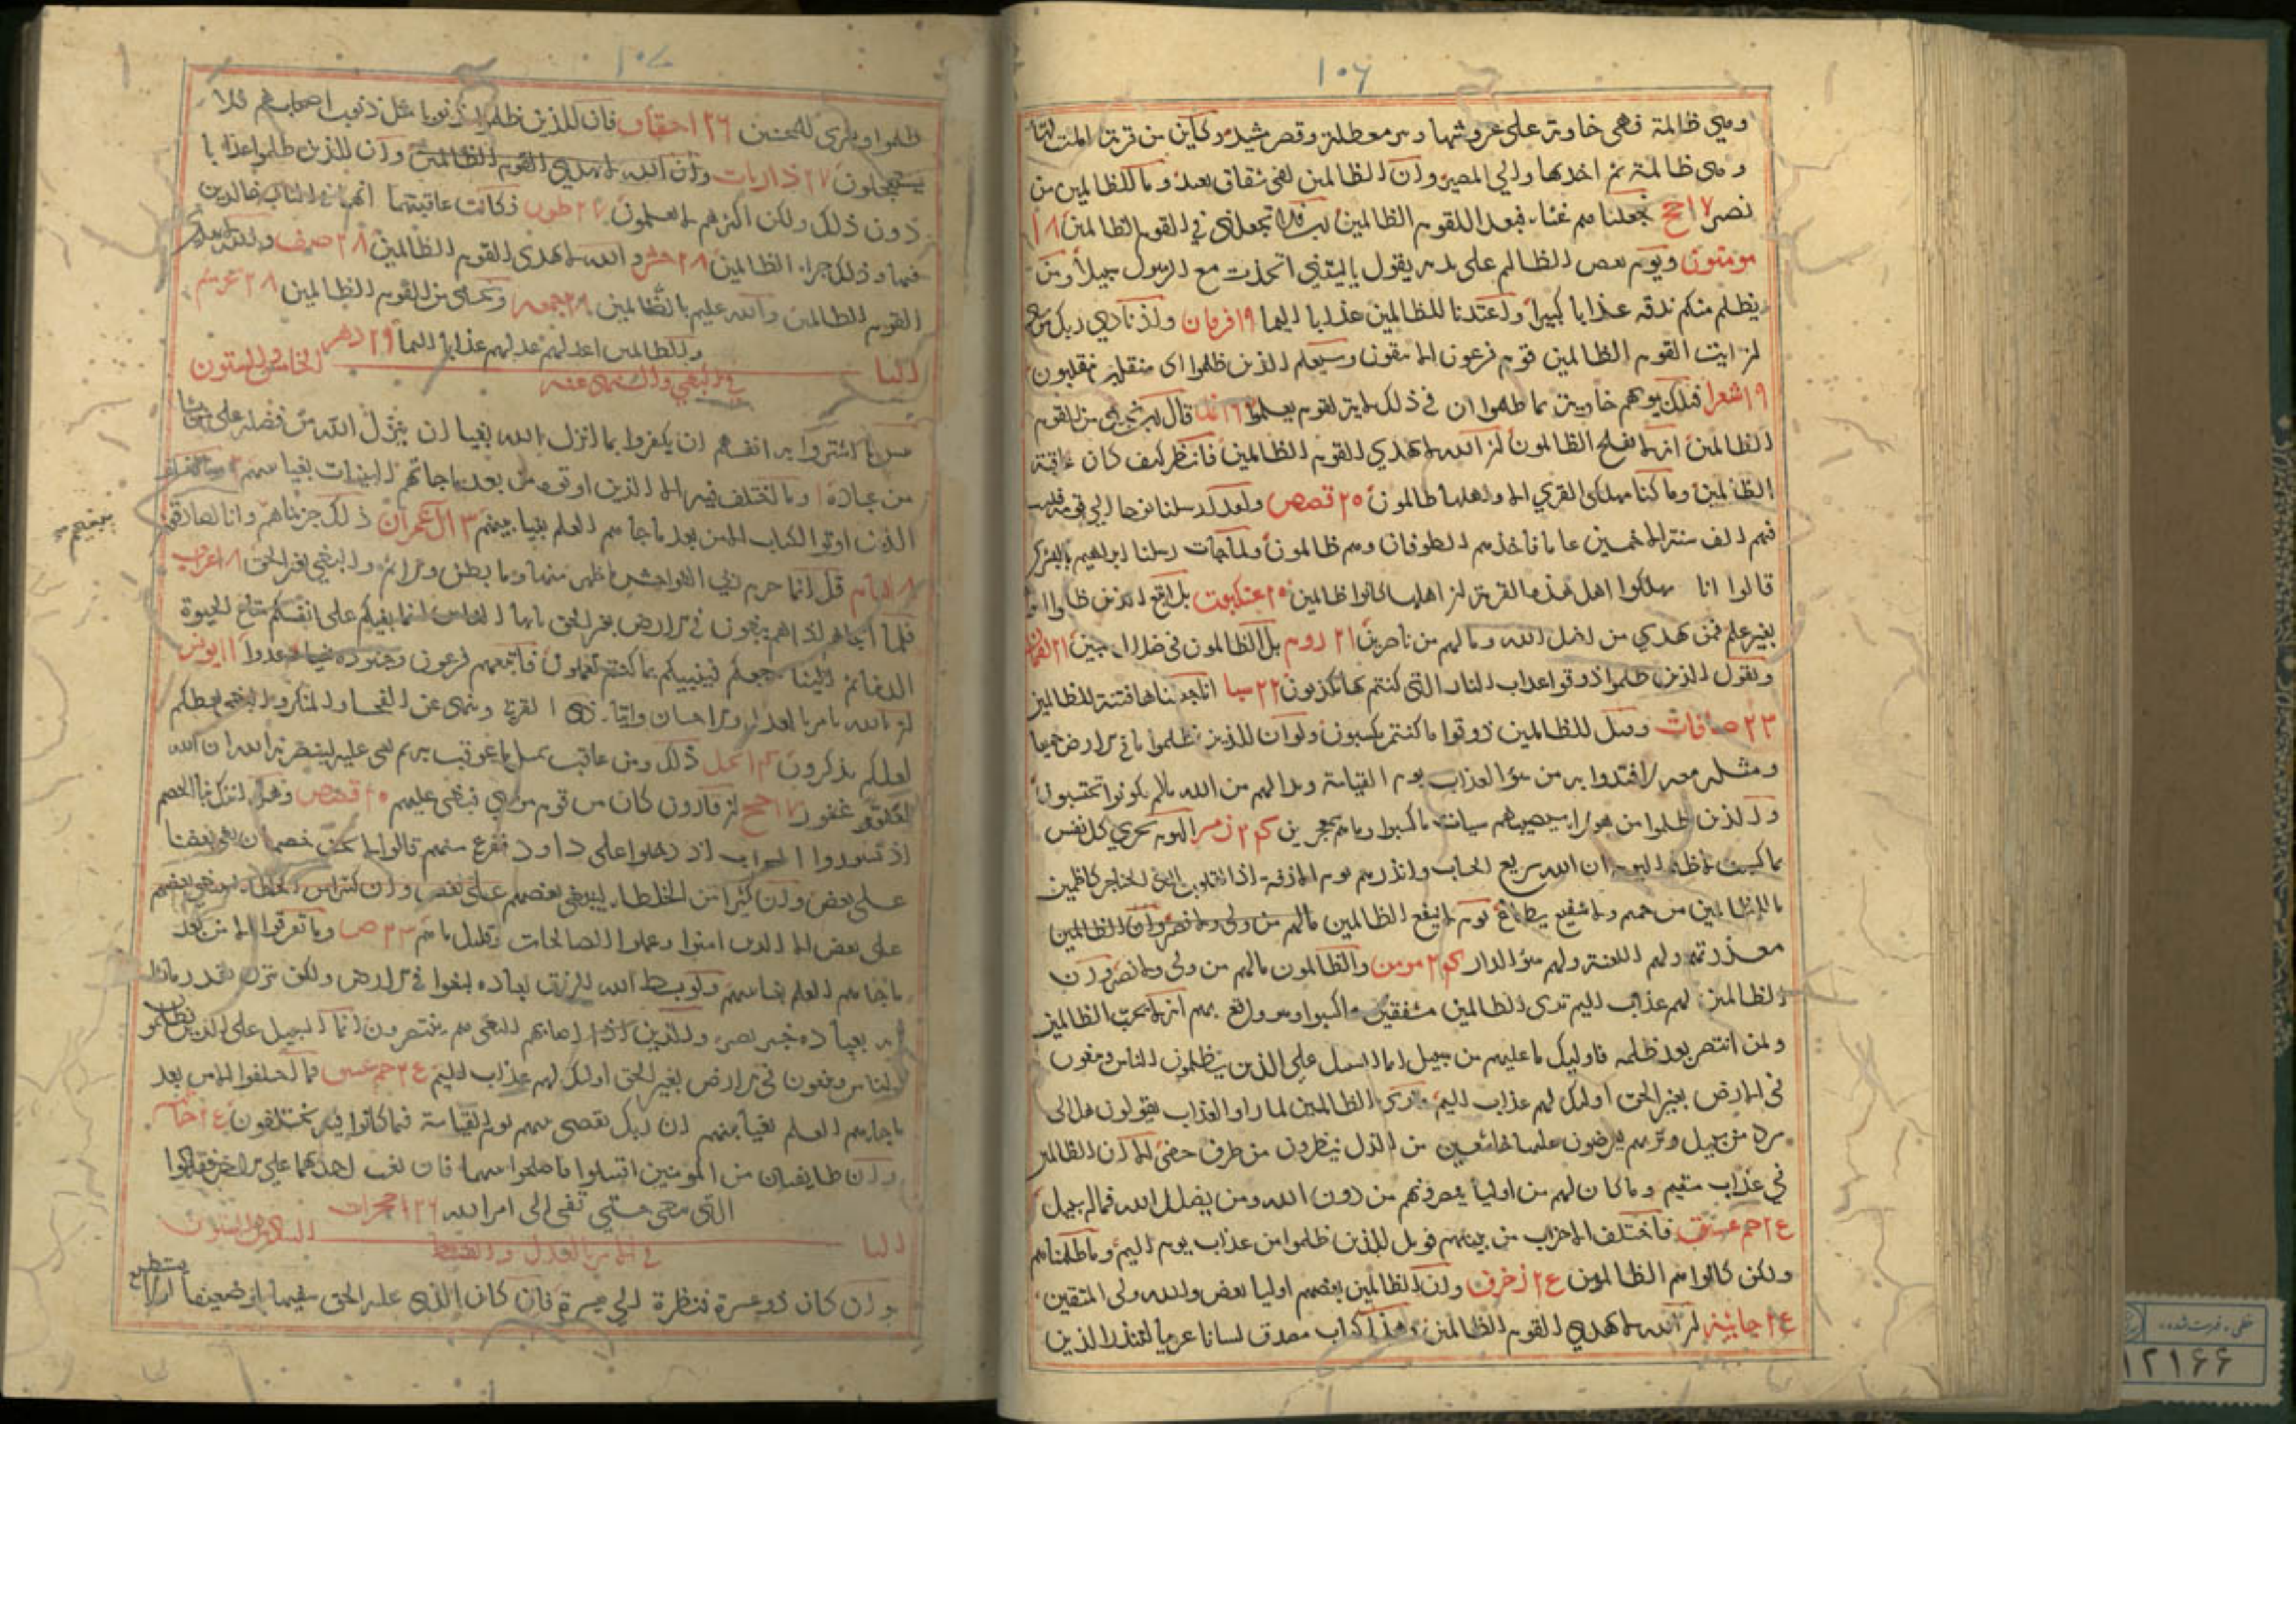 ١٠٦
وهي ظالمة فهي خاوية على عروشها وبير معطلة وقصر مشيد وكاين من قرية امليت لها
وهي ظالمة ثم اخذتها والي المصير وان الظالمين لفي شقاق بعيد وما للظالمين من
نصير ١٧ حج فجعلناهم غثاء فبعدا للقوم الظالمين رب فلا تجعلني في القوم الظالمين ١٨
مومنون ويوم يعض الظالم على يديه يقول يا ليتني اتخذت مع الرسول سبيلا ومن
يظلم منكم نذقه عذابا كبيرا واعتدنا للظالمين عذابا اليما ١٩ فرقان واذ نادي ربك موسى
ان ايت القوم الظالمين قوم فرعون الا يتقون وسيعلم الذين ظلموا اي منقلب ينقلبون
١٩ شعرا فتلك بيوتهم خاوية بما ظلموا ان في ذلك لاية لقوم يعلمون نمل قال رب نجني من القوم
الظالمين انه لا يفلح الظالمون ان الله لا يهدي القوم الظالمين فانظر كيف كان عاقبة
الظالمين وما كنا مهلكي القري الا واهلها ظالمون ٢٠ قصص ولقد ارسلنا نوحا الي قومه فلبث
فيهم الف سنة الا خمسين عاما فاخذهم الطوفان وهم ظالمون ولما جات رسلنا ابراهيم بالبشرى
قالوا انا مهلكوا اهل هذه القرية ان اهلها كانوا ظالمين ٢٠ عنكبوت بل اتبع الذين ظلموا
بغير علم فمن يهدي من اضل الله وما لهم من ناصرين ٢١ روم بل الظالمون في ضلال مبين ٢١ لقمان
ونقول للذين ظلموا ذوقوا عذاب النار التي كنتم بها تكذبون ٢٢ سبا انا جعلناها فتنة للظالمين
٢٣ صافات وقيل للظالمين ذوقوا ما كنتم تكسبون ولو ان للذين ظلموا ما في الارض جميعا
ومثله معه لافتدوا به من سؤ العذاب يوم القيامة وبدا لهم من الله ما لم يكونوا يحتسبون
والذين ظلموا من هولا سيصيبهم سيات ما كسبوا وما هم بمعجزين ٢٤ زمر اليوم تجزي كل نفس
بما كسبت لا ظلم اليوم ان الله سريع الحساب وانذرهم يوم الازفة اذ القلوب لدى الحناجر كاظمين
ما للظالمين من حميم ولا شفيع يطاع يوم لا ينفع الظالمين ما لهم من ولي ولا نصير وان الظالمين
معذرتهم ولهم اللعنة ولهم سؤ الدار ٢٤ مومن والظالمون ما لهم من ولي ولا نصير وان
الظالمين لهم عذاب اليم تري الظالمين مشفقين مما كسبوا وهو واقع بهم انه لا يحب الظالمين
ولمن انتصر بعد ظلمه فاوليك ما عليهم من سبيل انما السبيل على الذين يظلمون الناس ويبغون
في الارض بغير الحق اوليك لهم عذاب اليم وتري الظالمين لما راوا العذاب يقولون هل الى
مرد من سبيل وتريهم يعرضون عليها خاشعين من الذل ينظرون من طرف خفي الا ان الظالمين
في عذاب مقيم وما كان لهم من اوليا ينصرونهم من دون الله ومن يضلل الله فما له من سبيل
٢٤ حم عسق فاختلف الاحزاب من بينهم فويل للذين ظلموا من عذاب يوم اليم وما ظلمناهم
ولكن كانوا هم الظالمين ٢٤ زخرف وان الظالمين بعضهم اوليا بعض والله ولي المتقين
٢٤ جاثية ان الله لا يهدي القوم الظالمين وهذا كتاب مصدق لسانا عربيا لتنذر الذين
١٠٧
ظلموا وبشرى للمحسنين ٢٦ احقاف فان للذين ظلموا ذنوبا مثل ذنوب اصحابهم فلا
يستعجلون ٢٧ ذاريات وان الله لا يهدي القوم الظالمين وان للذين ظلموا عذابا
دون ذلك ولكن اكثرهم لا يعلمون ٢٧ طور فكانت عاقبتهما انهما في النار خالدين
فيها وذلك جزاء الظالمين ٢٨ حشر والله لا يهدي القوم الظالمين ٢٨ صف والله لا يهدي
القوم الظالمين والله عليم بالظالمين ٢٨ جمعه ونجني من القوم الظالمين ٢٨ تحريم
والظالمين اعد لهم عذابا اليما ٢٩ دهر
الباب الخامس والستون
في البغي والنهي عنه
بئس ما اشتروا به انفسهم ان يكفروا بما انزل الله بغيا ان ينزل الله من فضله على من يشا
من عباده وما اختلف فيه الا الذين اوتوه من بعد ما جاتهم البينات بغيا بينهم
الذين اوتوا الكتاب الا من بعد ما جاهم العلم بغيا بينهم ٣ ال عمران ذلك جزيناهم ببغيهم وانا لصادقون
٨ انعام قل انما حرم ربي الفواحش ما ظهر منها وما بطن والاثم والبغي بغير الحق ٨ اعراف
فلما انجاهم اذا هم يبغون في الارض بغير الحق يا ايها الناس انما بغيكم على انفسكم متاع الحيوة
الدنيا ثم الينا مرجعكم فينبيكم بما كنتم تعملون فاتبعهم فرعون وجنوده بغيا وعدوا ١١ يونس
ان الله يامر بالعدل والاحسان وايتا ذي القربى وينهى عن الفحشا والمنكر والبغي يعظكم
لعلكم تذكرون ١٤ نحل ذلك ومن عاقب بمثل ما عوقب به ثم بغي عليه لينصرنه الله ان الله
لعفو غفور ١٧ حج ان قارون كان من قوم موسي فبغى عليهم ٢٠ قصص وهل اتاك نبا الخصم
اذ تسوروا المحراب اذ دخلوا على داود ففزع منهم قالوا لا تخف خصمان بغى بعضنا
على بعض وان كثيرا من الخلطاء ليبغي بعضهم على بعض
على بعض الا الذين امنوا وعملوا الصالحات وقليل ما هم ٢٣ ص وما تفرقوا الا من بعد
ما جاهم العلم بغيا بينهم ولو بسط الله الرزق لعباده لبغوا في الارض ولكن ينزل بقدر ما يشا
انه بعباده خبير بصير والذين اذا اصابهم البغي هم ينتصرون انما السبيل على الذين يظلمون
الناس ويبغون في الارض بغير الحق اوليك لهم عذاب اليم ٢٤ حم عسق فما اختلفوا الا من بعد
ما جاهم العلم بغيا بينهم ان ربك يقضي بينهم يوم القيامة فيما كانوا فيه يختلفون ٢٤ جاثيه
وان طايفتان من المومنين اقتتلوا فاصلحوا بينهما فان بغت احديهما على الاخرى فقاتلوا
التي تبغي حتي تفي الى امر الله ٢٦ حجرات
الباب السادس والستون
في الامر بالعدل والقسط
وان كان ذو عسرة فنظرة الي ميسرة فان كان الذي عليه الحق سفيها او ضعيفا او لا يستطيع
خطى ، فهرست شده
١٢١٦٦